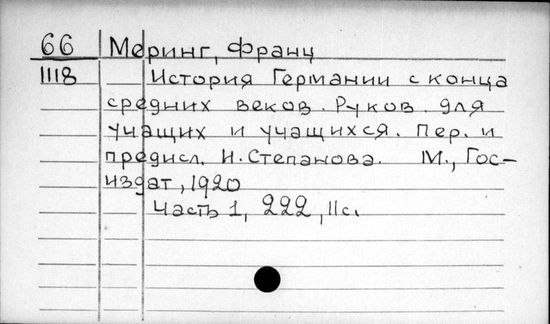 66 Меринг, Франц
1118 История Германии с конца
средних веков. Руков. для
учащих и учащихся. Пер. и
предисл. И. Степанова. М., Гос-
издат, 1920
Часть 1, 222, IIс.